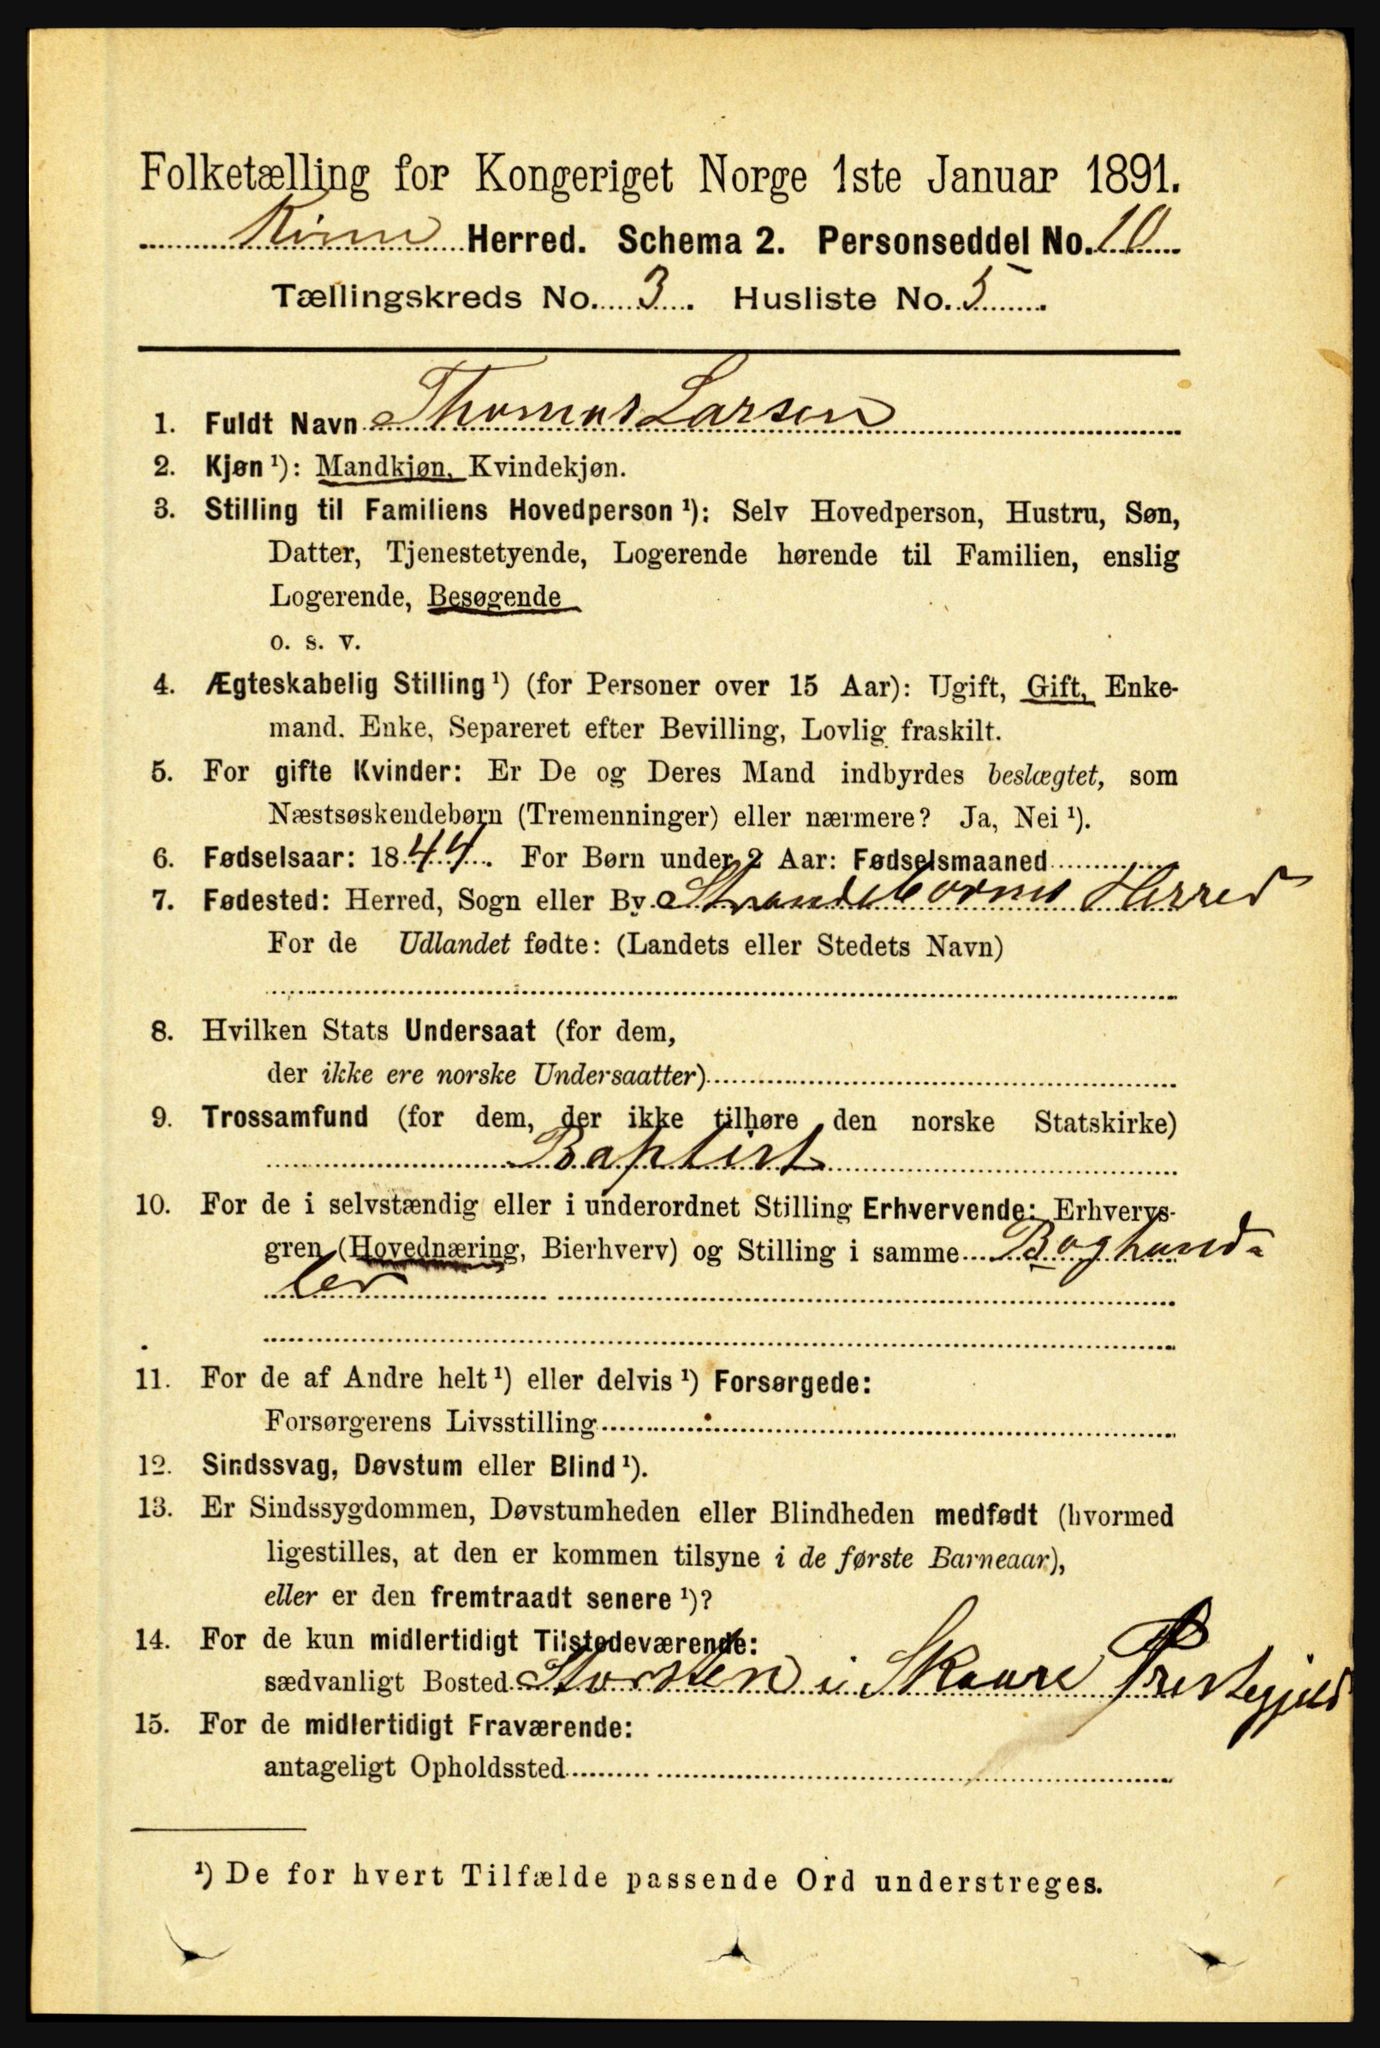 Folketælling for Kongeriget Norge 1ste Januar 1891.
Kinn Herred. Schema 2. Personseddel No. 10
Tællingskreds No. 3. Husliste No. 5.
1. Fuldt Navn Thomas Larsen
2. Kjøn¹): Mandkjøn, Kvindekjøn.
3. Stilling til Familiens Hovedperson¹): Selv Hovedperson, Hustru, Søn,
Datter, Tjenestetyende, Logerende hørende til Familien, enslig
Logerende, Besøgende
o. s. v.
4. Ægteskabelig Stilling¹) (for Personer over 15 Aar): Ugift, Gift, Enke-
mand, Enke, Separeret efter Bevilling, Lovlig fraskilt.
5. For gifte Kvinder: Er De og Deres Mand indbyrdes beslægtet, som
Næstsøskendebørn (Tremenninger) eller nærmere? Ja, Nei¹).
6. Fødselsaar: 1844. For Børn under 2 Aar: Fødselsmaaned
7. Fødested: Herred, Sogn eller By Strandeborms Herred
For de Udlandet fødte: (Landets eller Stedets Navn)
8. Hvilken Stats Undersaat (for dem,
der ikke ere norske Undersaatter)
9. Trossamfund (for dem, der ikke tilhøre den norske Statskirke)
Baptist
10. For de i selvstændig eller i underordnet Stilling Erhvervende: Erhvervs-
gren (Hovednæring, Bierhverv) og Stilling i samme Boghand-
ler
11. For de af Andre helt¹) eller delvis¹) Forsørgede:
Forsørgerens Livsstilling
12. Sindssvag, Døvstum eller Blind¹).
13. Er Sindssygdommen, Døvstumheden eller Blindheden medfødt (hvormed
ligestilles, at den er kommen tilsyne i de første Barneaar),
eller er den fremtraadt senere¹)?
14. For de kun midlertidigt Tilstedeværende:
sædvanligt Bosted Storsten i Skaare Prestegjeld
15. For de midlertidigt Fraværende:
antageligt Opholdssted
¹) De for hvert Tilfælde passende Ord understreges.